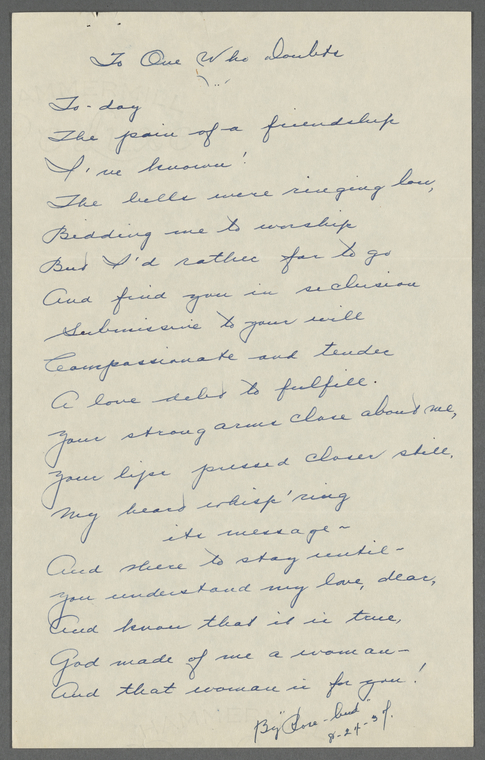 To One Who Doubts
To-day
The pain of a friendship
I've known!
The bells were ringing low,
Bidding me to worship
But I'd rather far to go
And find you in seclusion
Submissive to your will
Compassionate and tender
A love debt to fulfill.
Your strong arms close about me,
Your lips pressed closer still,
My heart whisp'ring
its message~
And there to stay until-
You understand my love, dear,
And know that it is true,
God made of me a woman-
And that woman is for you!
By "Rose-bud"
8-24-37.